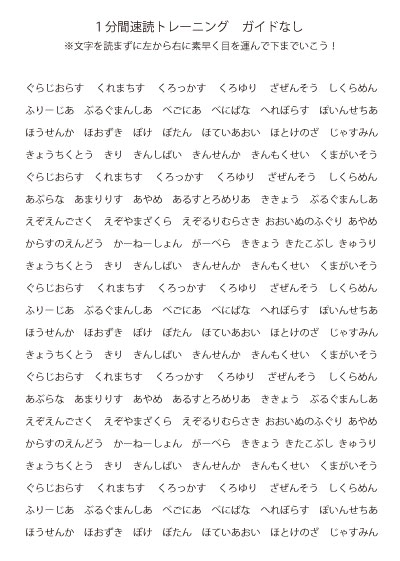 １分間速読トレーニング　ガイドなし
※文字を読まずに左から右に素早く目を運んで下までいこう！
ぐらじおらす　くれまちす　くろっかす　くろゆり　ざぜんそう　しくらめん
ふりーじあ　ぶるぐまんしあ　べごにあ　べにばな　へれぼらす　ぽいんせちあ
ほうせんか　ほおずき　ぼけ　ぼたん　ほていあおい　ほとけのざ　じゃすみん
きょうちくとう　きり　きんしばい　きんせんか　きんもくせい　くまがいそう
ぐらじおらす　くれまちす　くろっかす　くろゆり　ざぜんそう　しくらめん
あぶらな　あまりりす　あやめ　あるすとろめりあ　ききょう　ぶるぐまんしあ
えぞえんごさく　えぞやまざくら　えぞるりむらさき　おおいぬのふぐり　あやめ
からすのえんどう　かーねーしょん　がーべら　ききょう　きたこぶし　きゅうり
きょうちくとう　きり　きんしばい　きんせんか　きんもくせい　くまがいそう
ぐらじおらす　くれまちす　くろっかす　くろゆり　ざぜんそう　しくらめん
ふりーじあ　ぶるぐまんしあ　べごにあ　べにばな　へれぼらす　ぽいんせちあ
ほうせんか　ほおずき　ぼけ　ぼたん　ほていあおい　ほとけのざ　じゃすみん
きょうちくとう　きり　きんしばい　きんせんか　きんもくせい　くまがいそう
ぐらじおらす　くれまちす　くろっかす　くろゆり　ざぜんそう　しくらめん
あぶらな　あまりりす　あやめ　あるすとろめりあ　ききょう　ぶるぐまんしあ
えぞえんごさく　えぞやまざくら　えぞるりむらさき　おおいぬのふぐり　あやめ
からすのえんどう　かーねーしょん　がーべら　ききょう　きたこぶし　きゅうり
きょうちくとう　きり　きんしばい　きんせんか　きんもくせい　くまがいそう
ぐらじおらす　くれまちす　くろっかす　くろゆり　ざぜんそう　しくらめん
ふりーじあ　ぶるぐまんしあ　べごにあ　べにばな　へれぼらす　ぽいんせちあ
ほうせんか　ほおずき　ぼけ　ぼたん　ほていあおい　ほとけのざ　じゃすみん